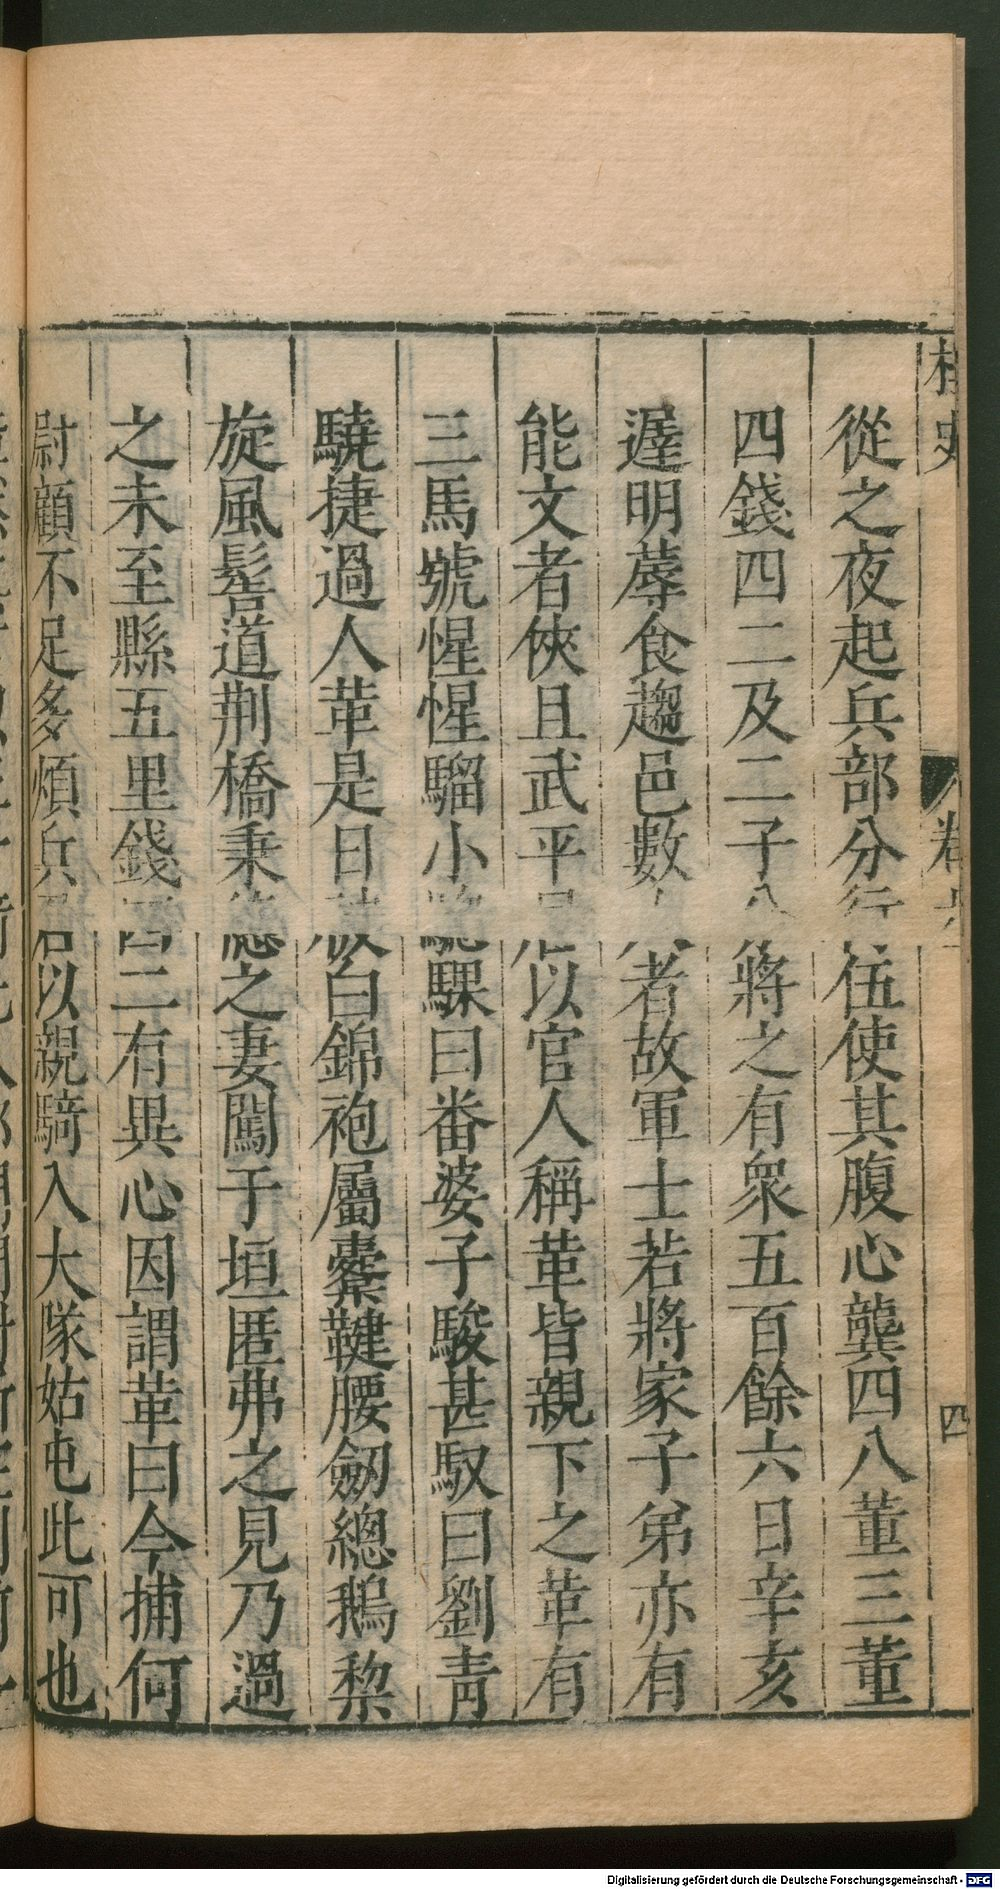 從之夜起兵部分行伍使其腹心龔四八董三董
四錢四二及二子分將之有眾五百餘六日辛亥
遲明蓐食趨邑數者故軍士若將家子弟亦有
能文者俠且武平以官人稱革皆親下之革有
三馬號惺惺騮小驄騍曰番婆子駿甚馭曰劉青
驍捷過人革是日被白錦袍屬櫜鞬腰劒總鵝梨
旋風髻道荆橋秉德之妻闖于垣匿弗之見乃過
之未至縣五里錢四二有異心因謂革曰今捕何
尉顧不足多煩兵君以親騎入大隊姑屯此可也
卷六
四
Digitalisierung gefördert durch die Deutsche Forschungsgemeinschaft - DFG